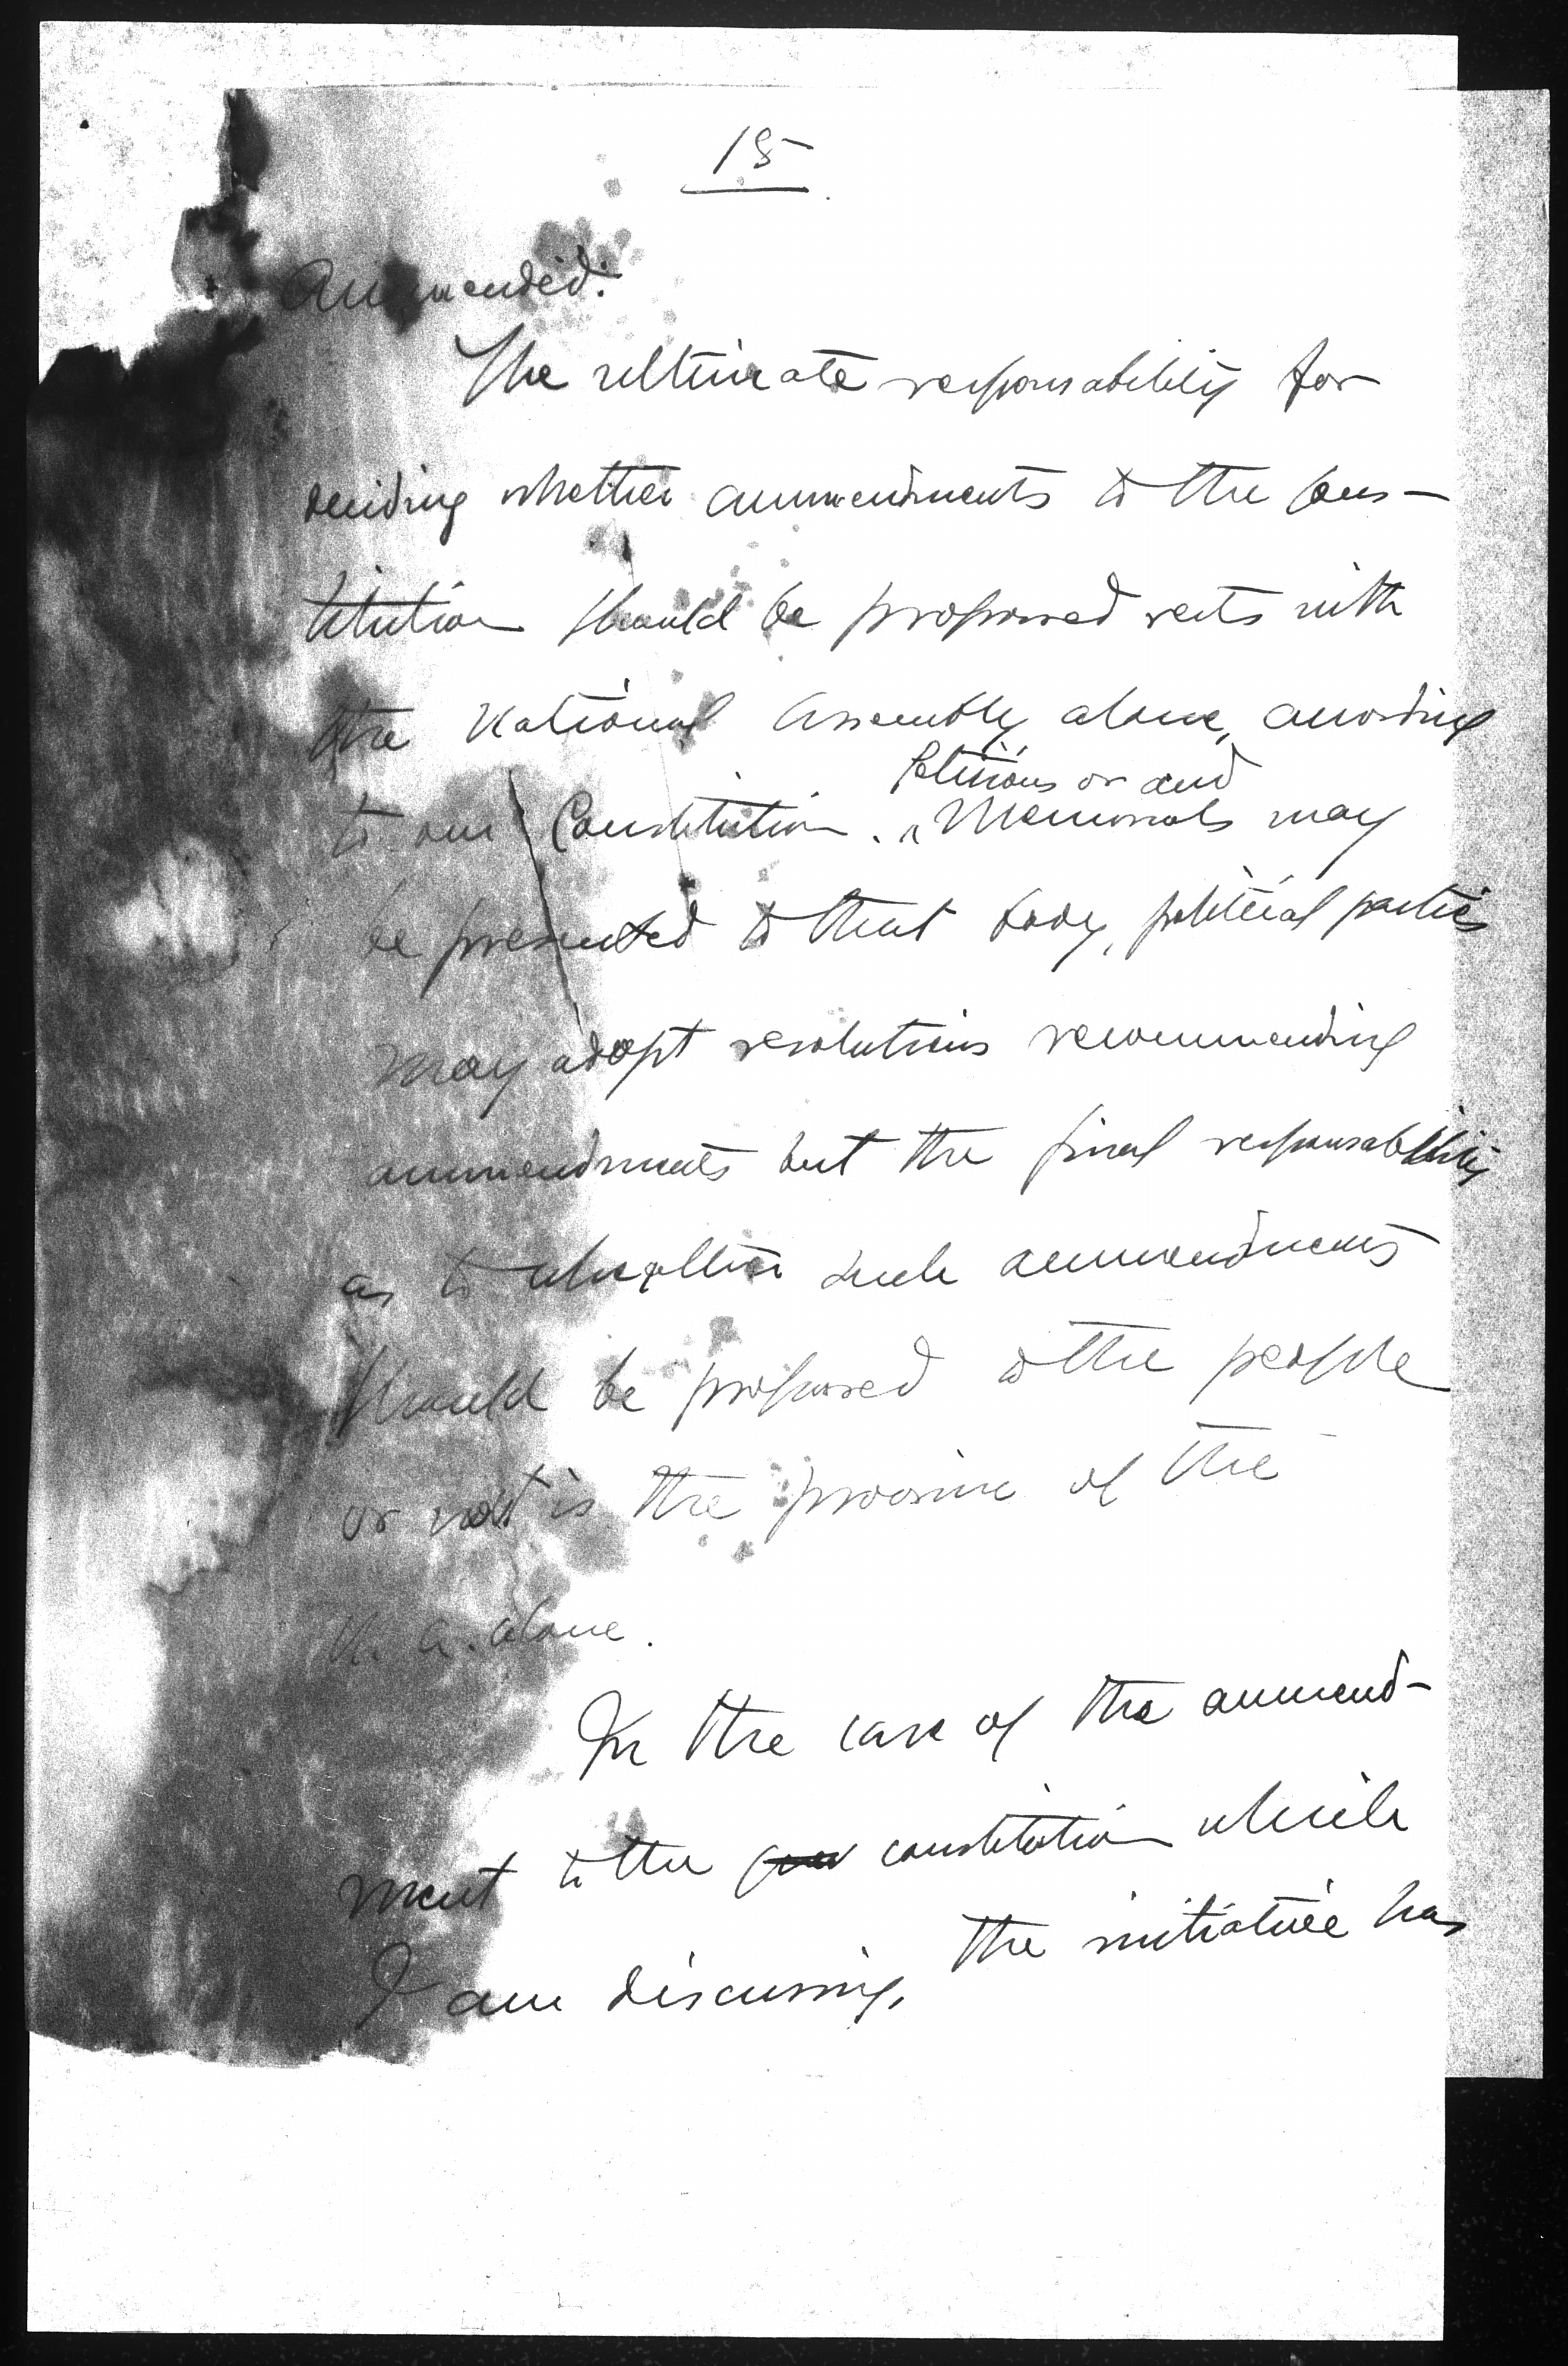 15
Ammended.
The ultimate responsability for
deciding whether ammendments to the Cons-
titution should be proposed rests with
the National Assembly alone, according
Petitions or and
to our Constitution. Memorials may
be presented to that body, political parties
may adopt resolutions recommending
ammendments but the final responsability
as to whether such ammendments
should be proposed to the people
or not is the province of the
N. A. alone.
In the case of the ammend-
ment to the constitution which
I am discussing, the initiative has